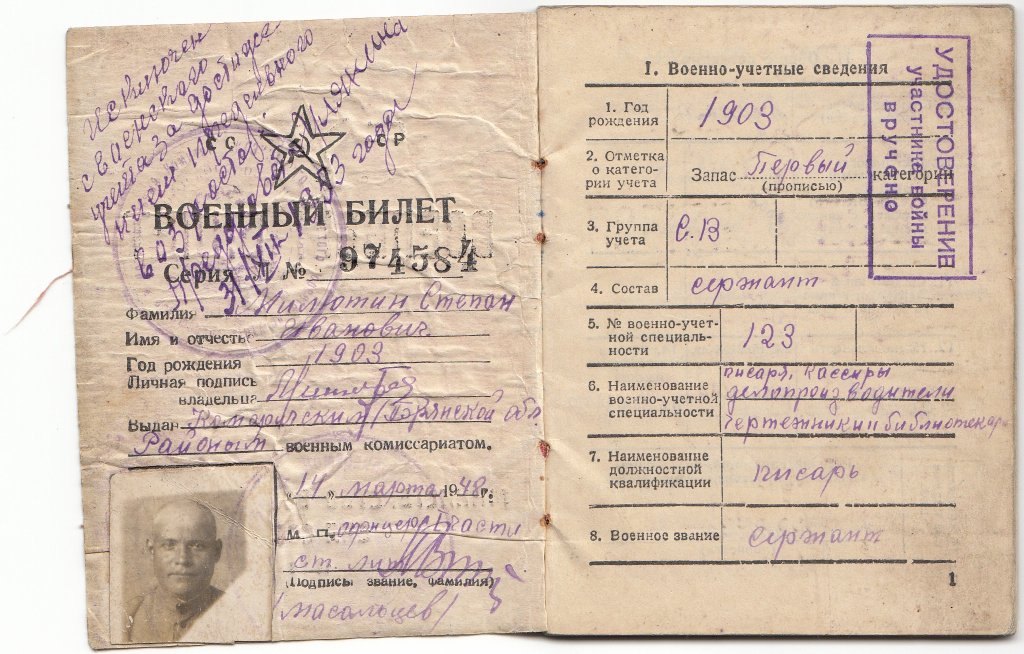 Исключен
с воинского
учета за достиже
нием предельного
возраста.
31/XII 1953 года
СС СР
ВОЕННЫЙ БИЛЕТ
Серия № 974584
Фамилия Милютин Степан
Имя и отчество Иванович
Год рождения 1903
Личная подпись
владельца
Выдан Комаричским /Брянской обл
Районым военным комиссариатом.
„14„ марта 1948г.
М. П.
ст. лит
(Подпись звание, фамилия)
/масальцев/
I. Военно-учетные сведения
1. Год
рождения 1903
2. Отметка
о катего-
рии учета Запас Первый категории
(прописью)
3. Группа
учета С.В
4. Состав сержант
5. № военно-учет-
ной специаль-
ности 123
6. Наименование
военно-учетной
специальности писаря, кассиры
делопроизводители
чертежники и библиотекари
7. Наименование
должностной
квалификации писарь
8. Военное звание сержант
1
УДОСТОВЕРЕНИЕ
участнике войны
вручено